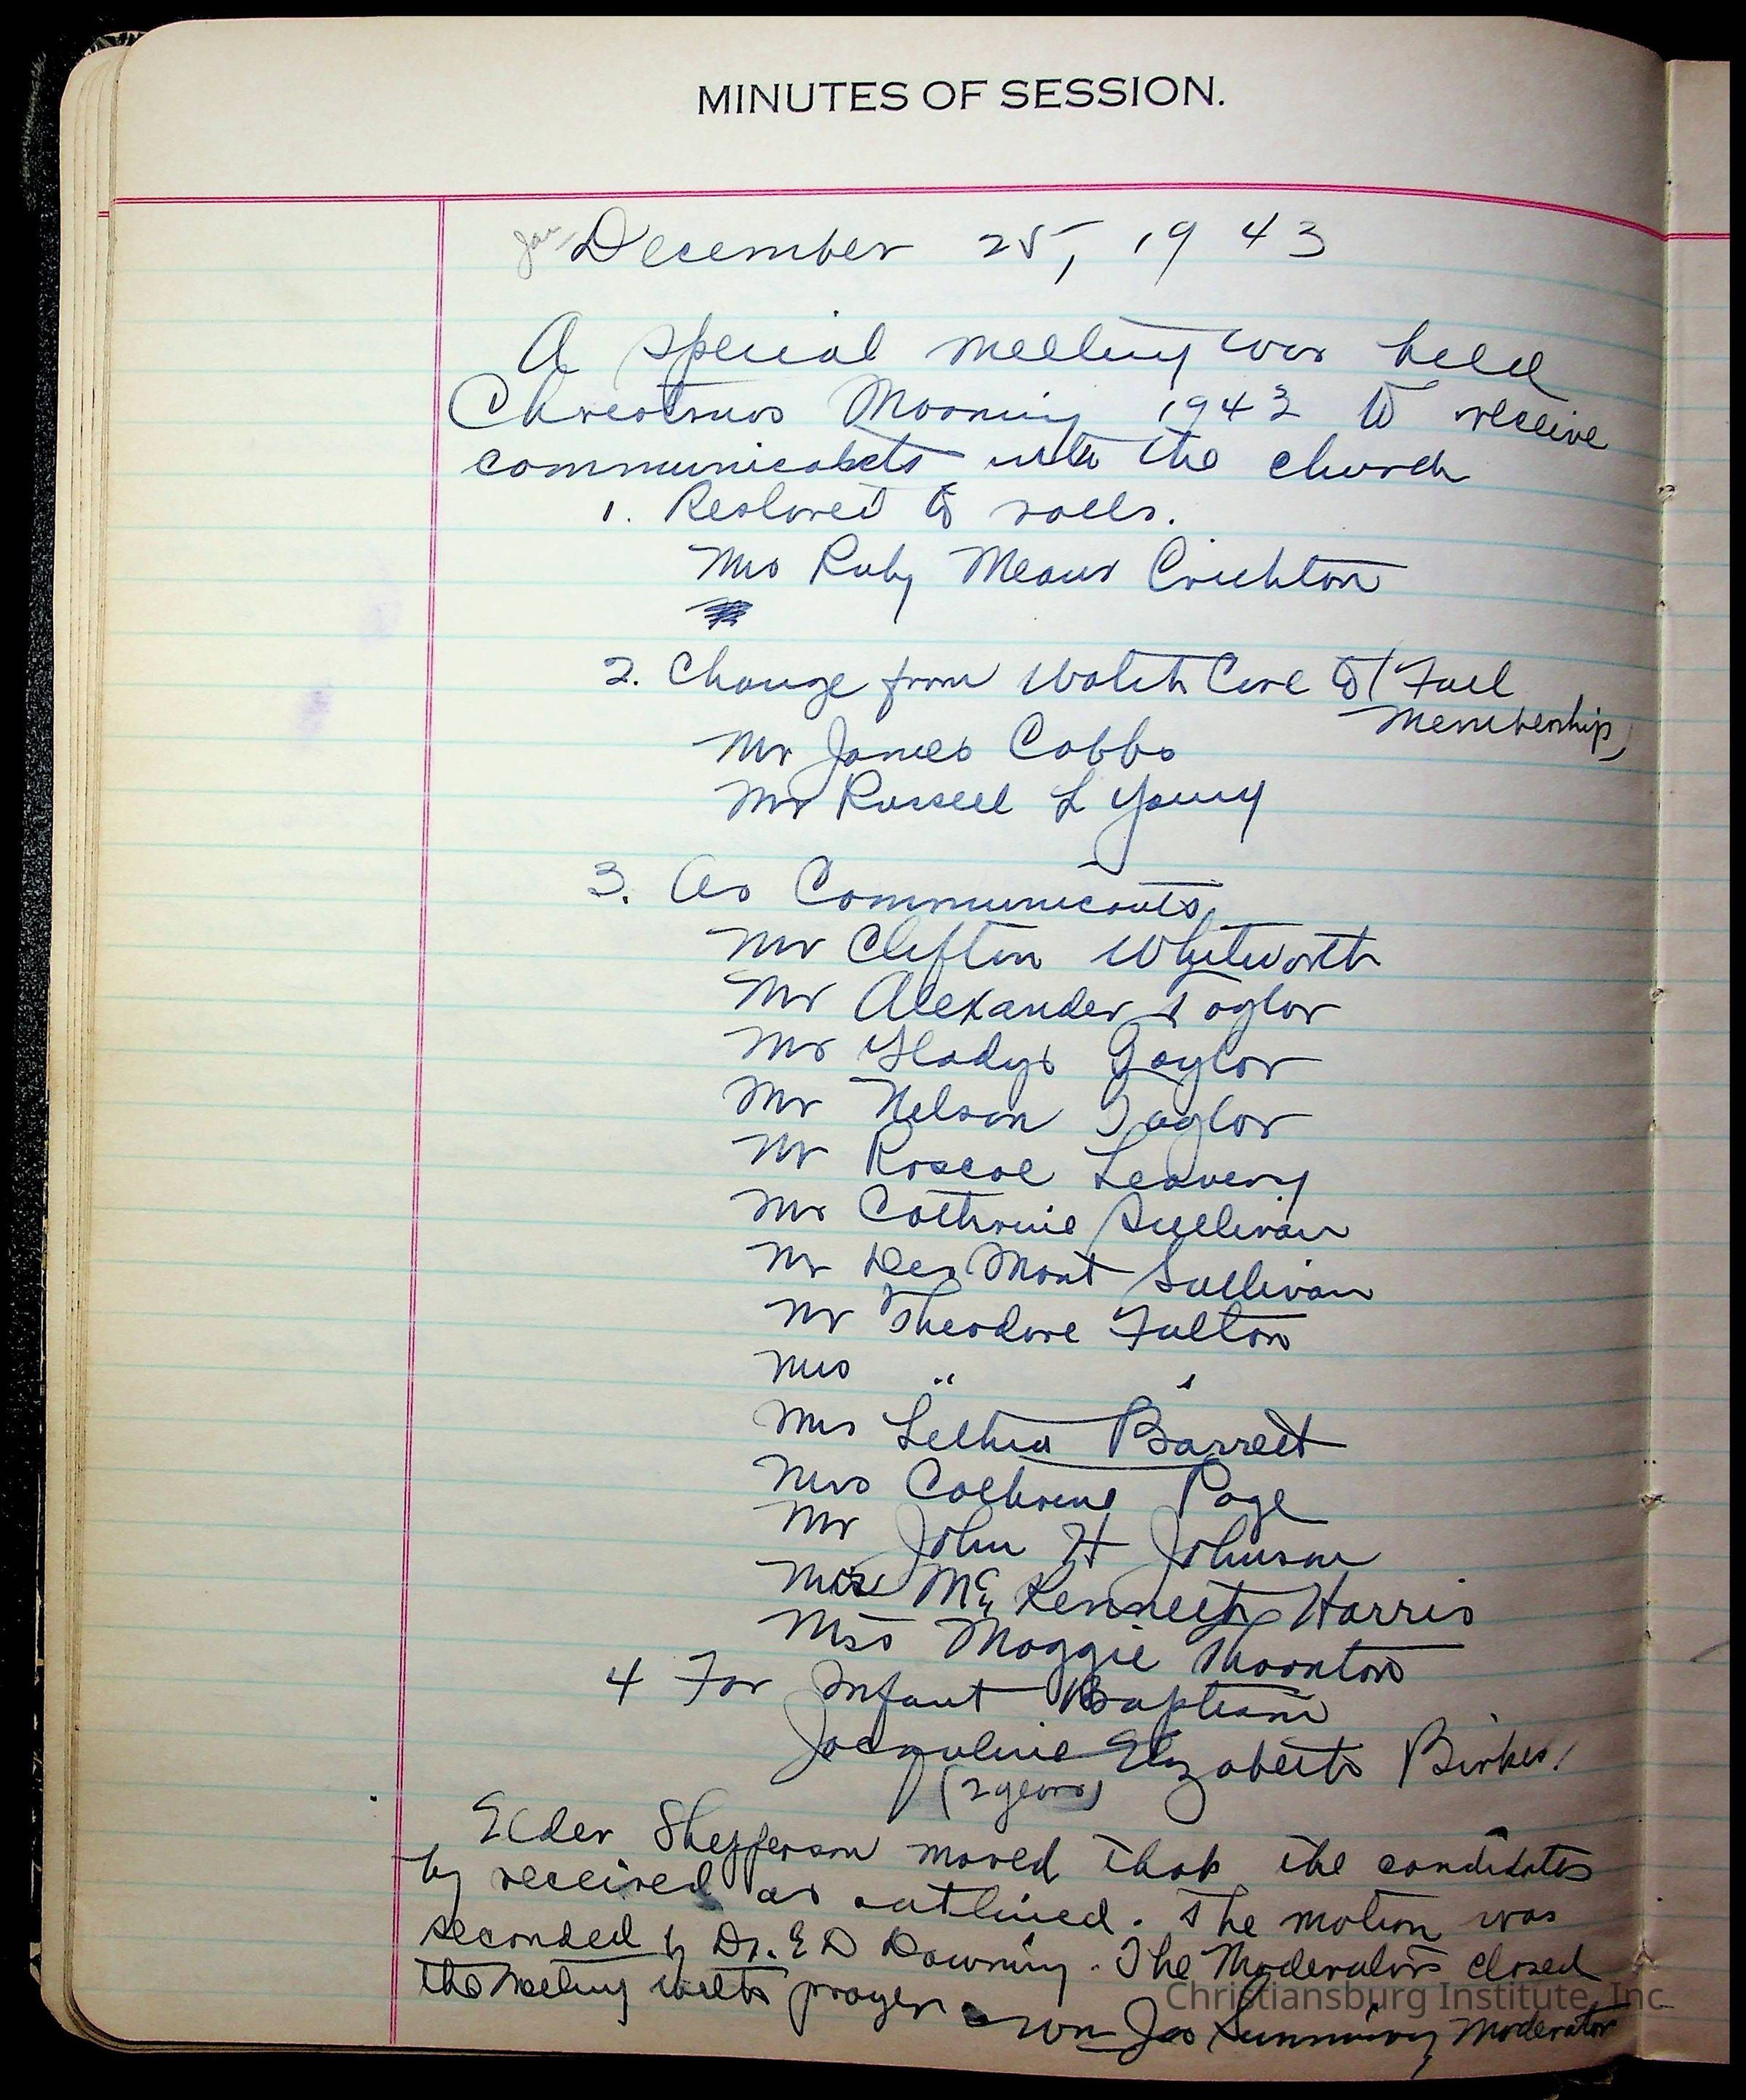 MINUTES OF SESSION.
Jan December 25, 1943
A special meeting was held
Christmas Morning 1943 to receive
communicants into the church
1. Restored to rolls.
Mrs Ruby Means Crichton
2. Change from Watch Care to Full
Membership,
Mr James Cobbs
Mr Russell L Young
3. As Communicants,
Mr Clifton Whitworth
Mr Alexander Taylor
Mrs Gladys Taylor
Mr Nelson Taylor
Mr Roscoe Leavery
Mrs Cathrine Sullivan
Mr Des Mont Sullivan
Mr Theodore Fulton
Mrs " "
Mrs Barrett
Mrs Cathrine Page
Mr John H Johnson
Mc Kenneth Harris
Mss Maggie Thornton
4 For Infant Baptism
Jacquline Elizabeth Birkes.
(2 years)
Elder Shefferson moved that the candidates
by received as outlined. The motion was
seconded by Dr. E D Downing. The Moderator closed
the meeting with prayer
Christiansburg Institute, Inc
Wm Jas Moderator